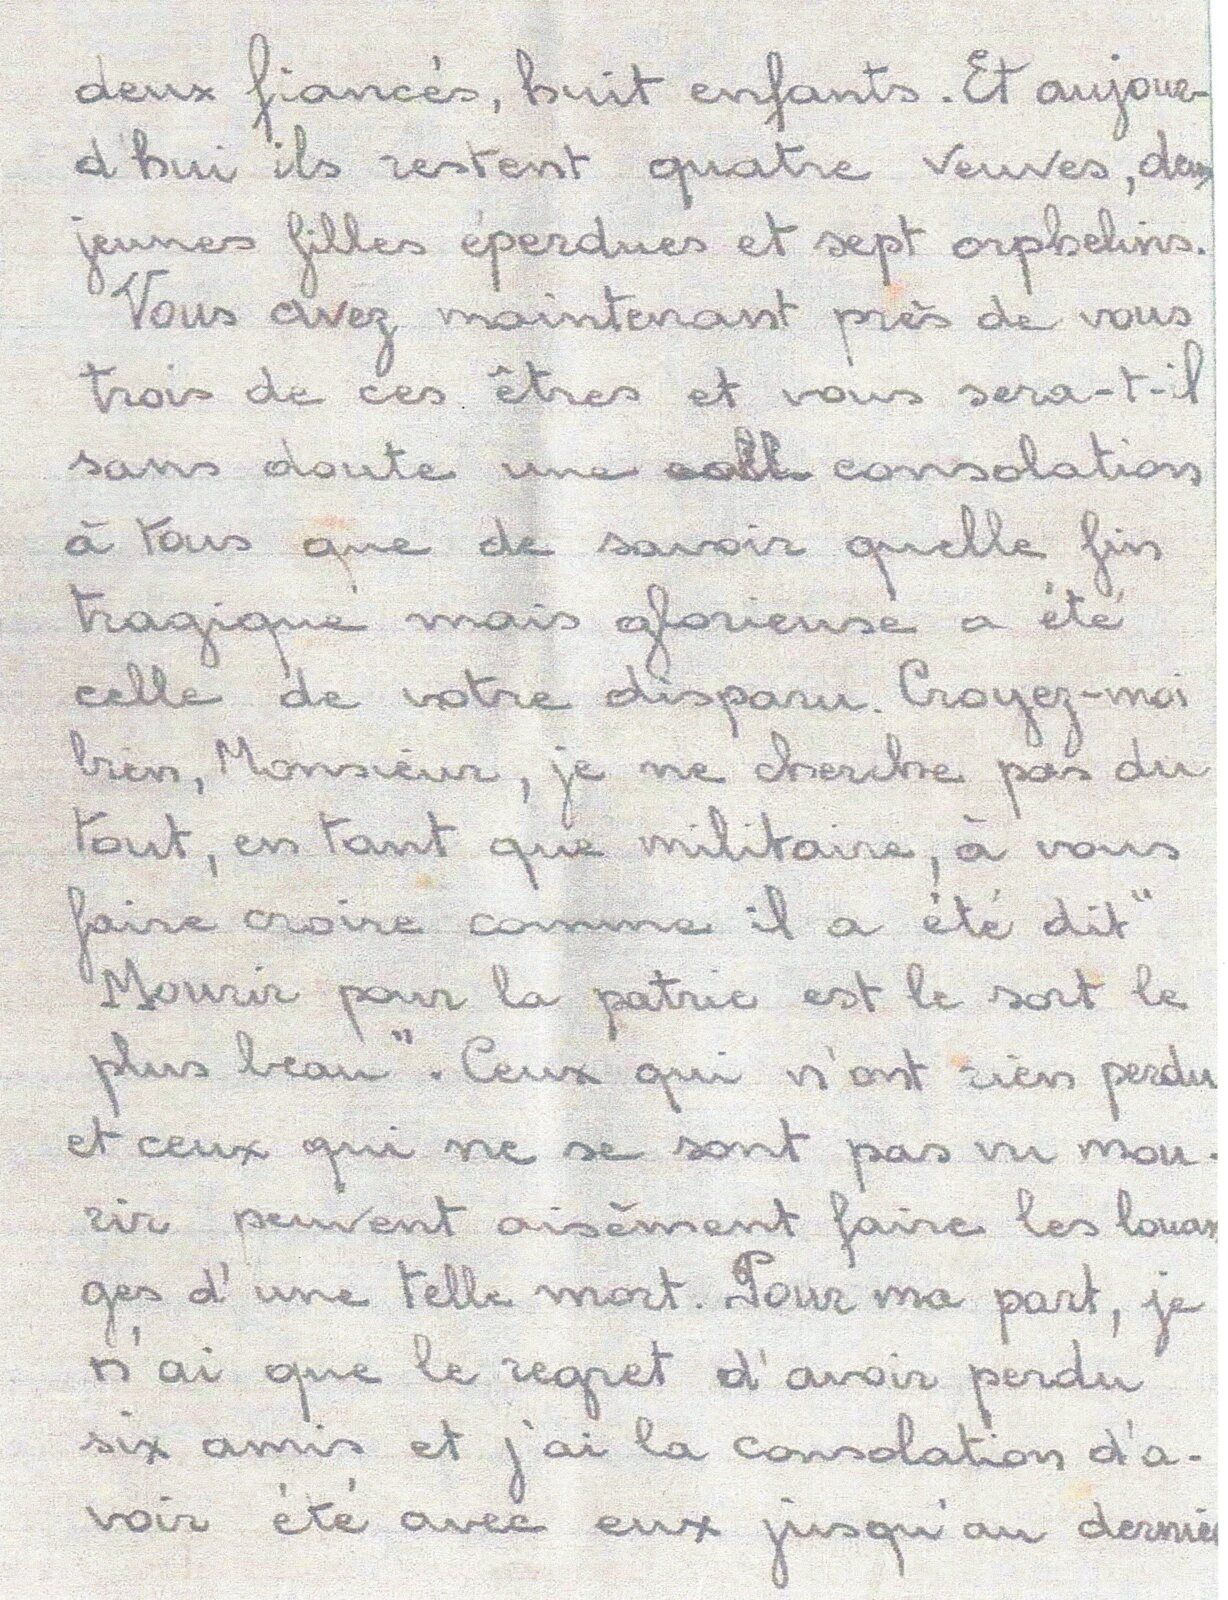 deux fiancés, huit enfants. Et aujour-
d'hui ils restent quatre veuves, deux
jeunes filles éperdues et sept orphelins.
Vous avez maintenant près de vous
trois de ces êtres et vous sera-t-il
sans doute une consolation
à tous que de savoir quelle fin
tragique mais glorieuse a été
celle de votre disparu. Croyez-moi
bien, Monsieur, je ne cherche pas du
tout, en tant que militaire, à vous
faire croire comme il a été dit "
Mourir pour la patrie est le sort le
plus beau". Ceux qui n'ont rien perdu
et ceux qui ne se sont pas vu mou-
rir peuvent aisément faire les louan
ges d'une telle mort. Pour ma part, je
n'ai que le regret d'avoir perdu
six amis et j'ai la consolation d'a-
voir été avec eux jusqu'au dernier